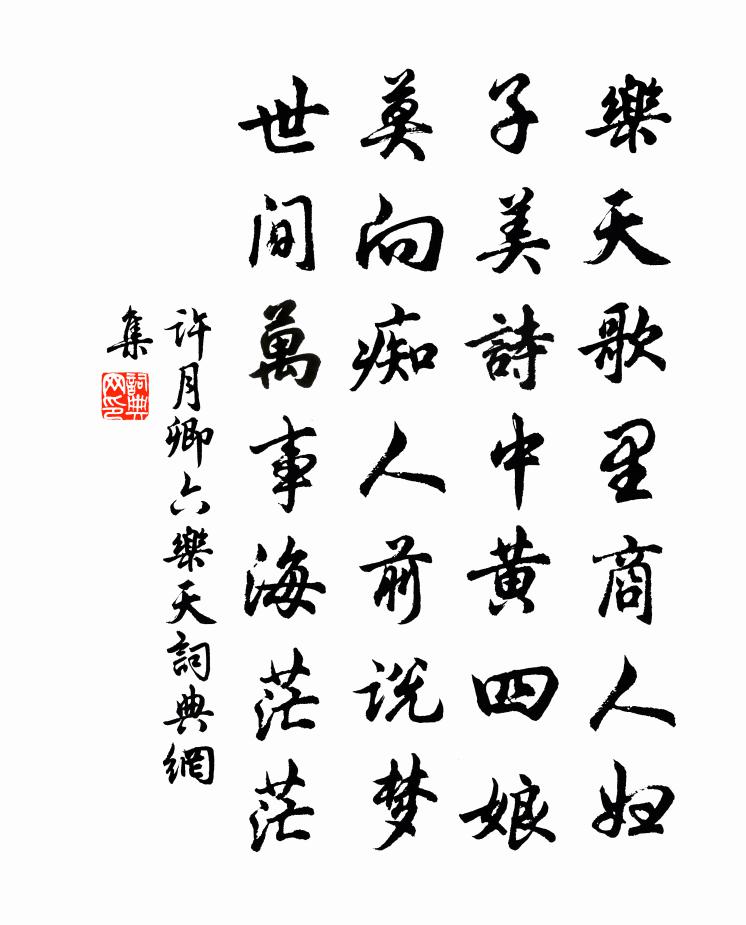 樂天歌里商人妇
子美詩中黄四娘
莫向痴人前说梦
世间萬事海茫茫
许月卿六樂天詞典網
集
詞典
网印